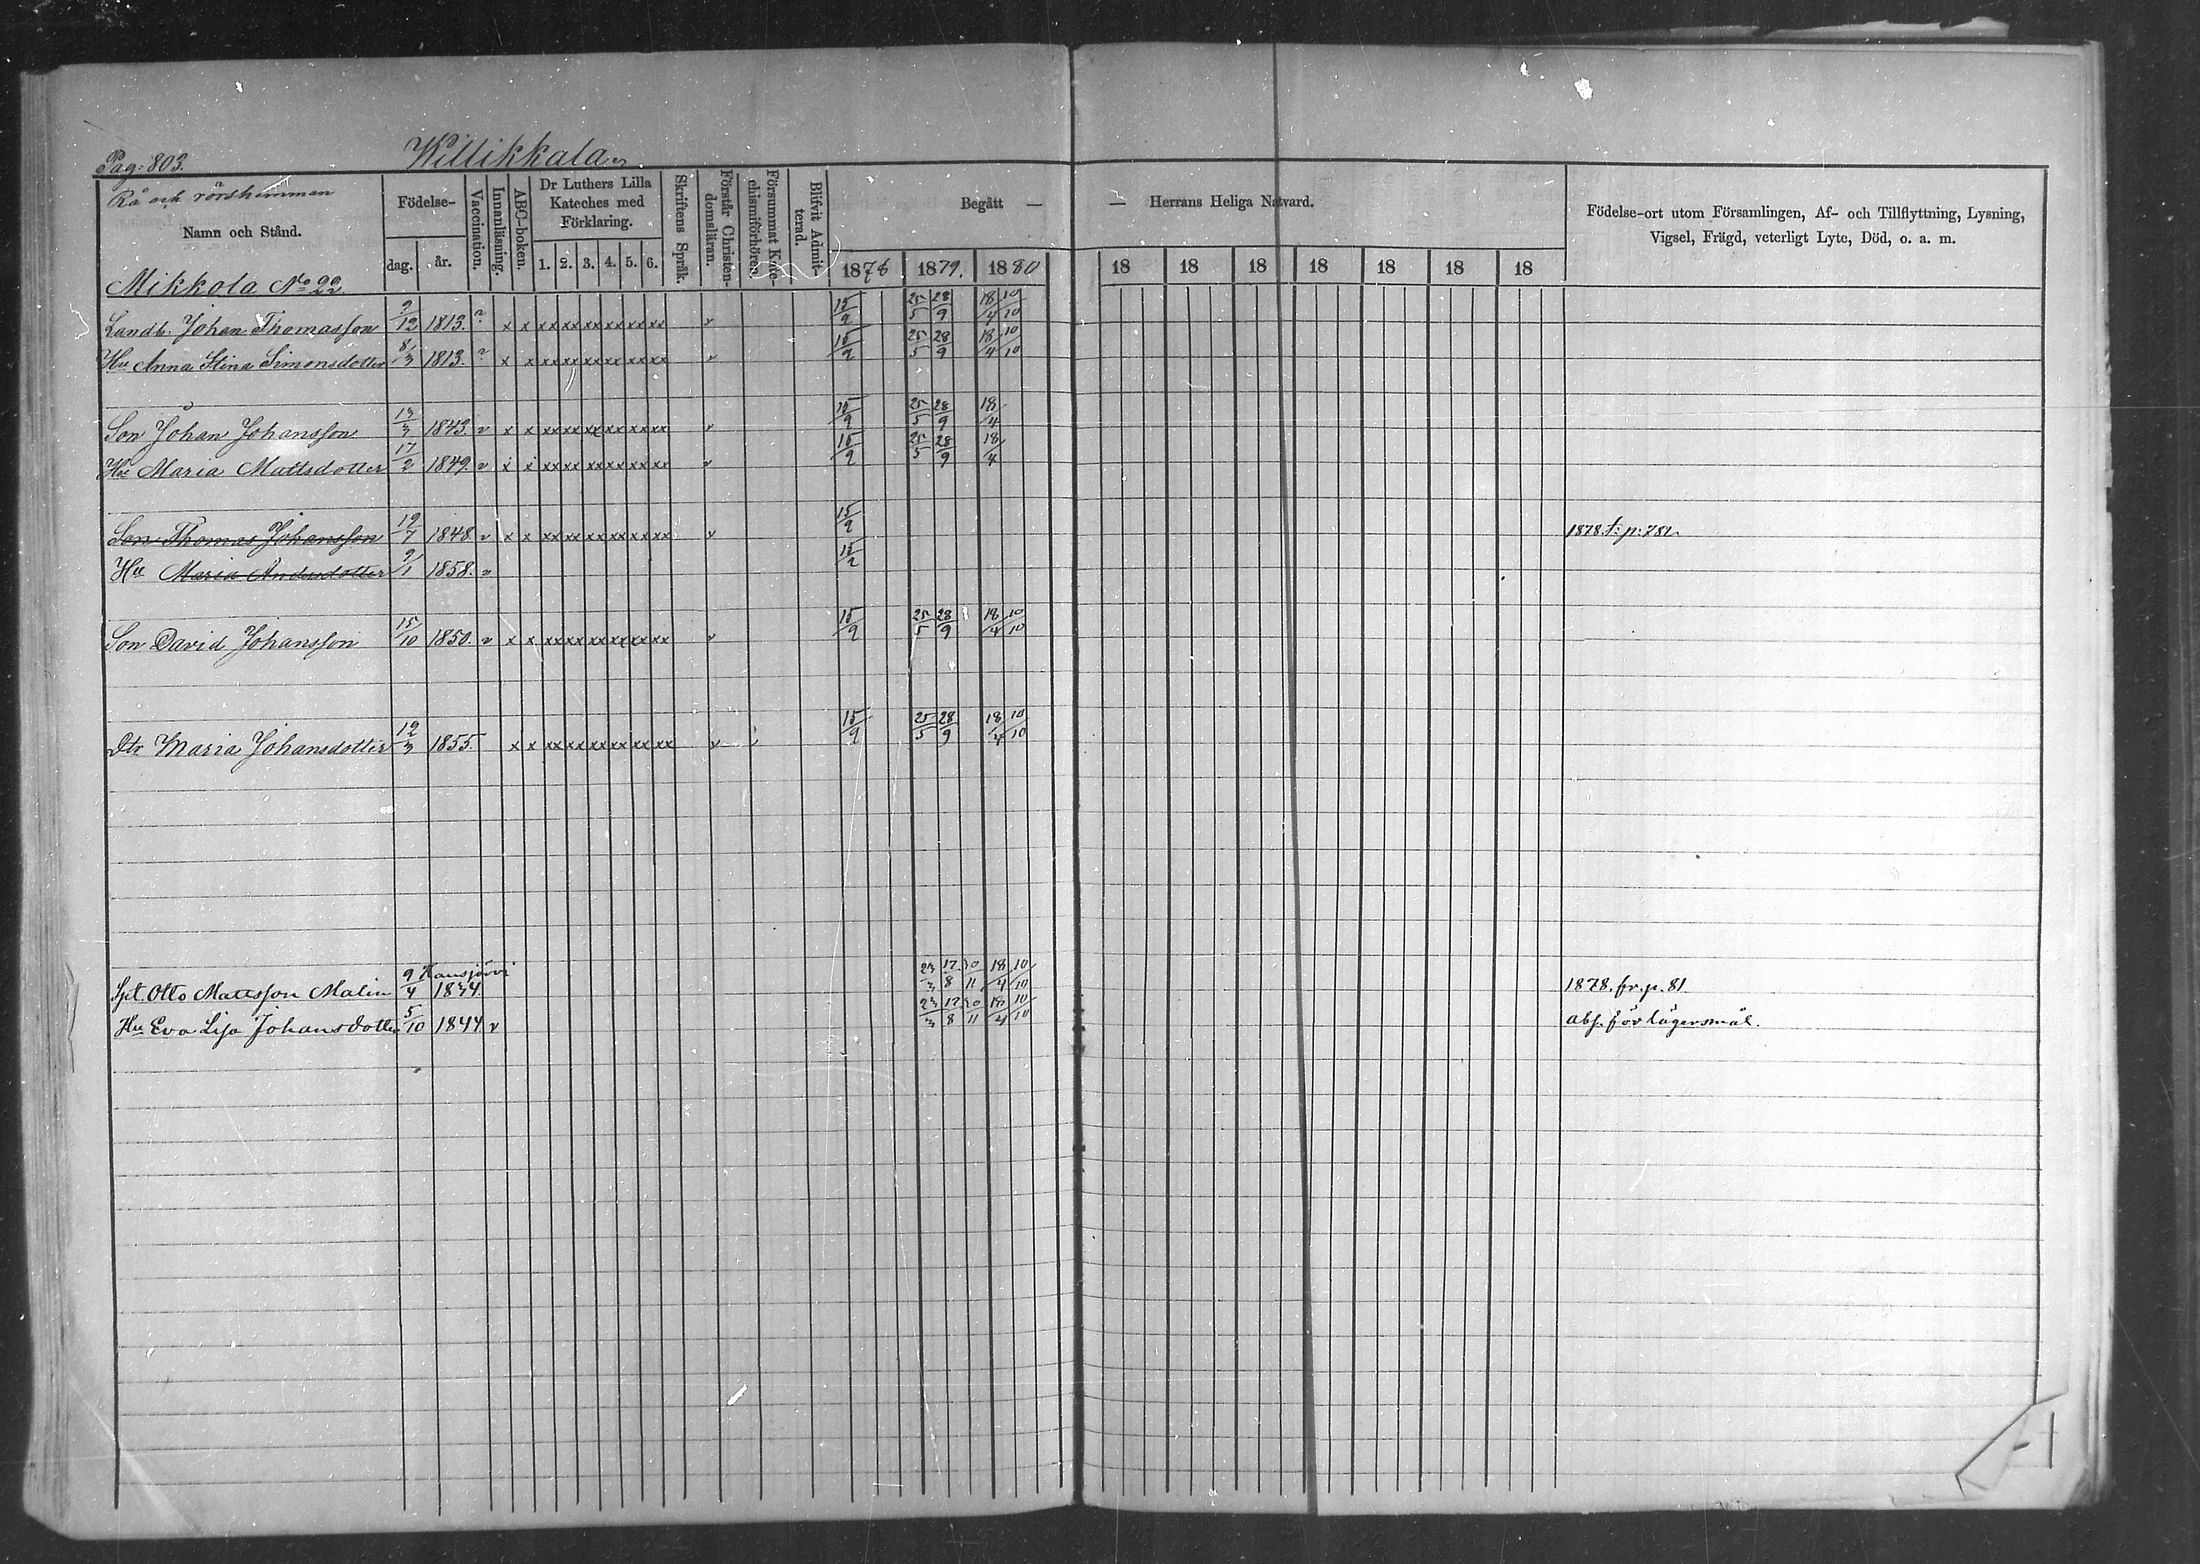 Pag: 803.
Willikkala
Rå och rörshemman
Namn och Stånd.
Födelse-
dag. år.
Vaccination.
Innanläsning.
ABC-boken.
Dr Luthers Lilla Kateches med Förklaring.
1. 2. 3. 4. 5. 6.
Skriftens Språk.
Förstår Christendomsläran.
Försummat Katechismiförhören.
Blifvit Admitterad.
Begått — — Herrans Heliga Nattvard.
1878 1879. 1880 18 18 18 18 18 18 18
Födelse-ort utom Församlingen, Af- och Tillflyttning, Lysning,
Vigsel, Frägd, veterligt Lyte, Död, o. a. m.
Mikkola No 22
Landb. Johan Thomasson 9/12 1813. ? x x xx xx xx xx xx xx v 15/9 25/5 28/9 18/4 10/10
Hu Anna Stina Simonsdotter 8/3 1813. ? x x xx xx xx xx xx xx v 15/9 25/5 28/9 18/4 10/10
Son Johan Johansson 13/3 1843. v x x xx xx xx xx xx xx v 15/9 25/5 28/9 18/4
Hu Maria Mattsdotter 17/2 1849. v x x xx xx xx xx xx xx v 15/9 25/5 28/9 18/4
Son Thomas Johansson 19/7 1848. v x x xx xx xx xx xx xx v 15/9 1878. t: p: 782.
Hu Maria Andersdotter 9/1 1858. v 15/2
Son David Johansson 15/10 1850. v x x xx xx xx xx xx xx v 15/9 25/5 28/9 18/4 10/10
Dtr Maria Johansdotter 12/3 1855. x x xx xx xx xx xx xx v 15/9 25/5 28/9 18/4 10/10
Hausjärvi
Spt. Otto Mattsson Malin 9/4 1834. 23/3 17/8 30/11 18/4 10/10 1878. fr. p. 81.
Hu Eva Lisa Johansdotter 5/10 1844. v 23/3 17/8 30/11 18/4 10/10 abs. för lägersmål.